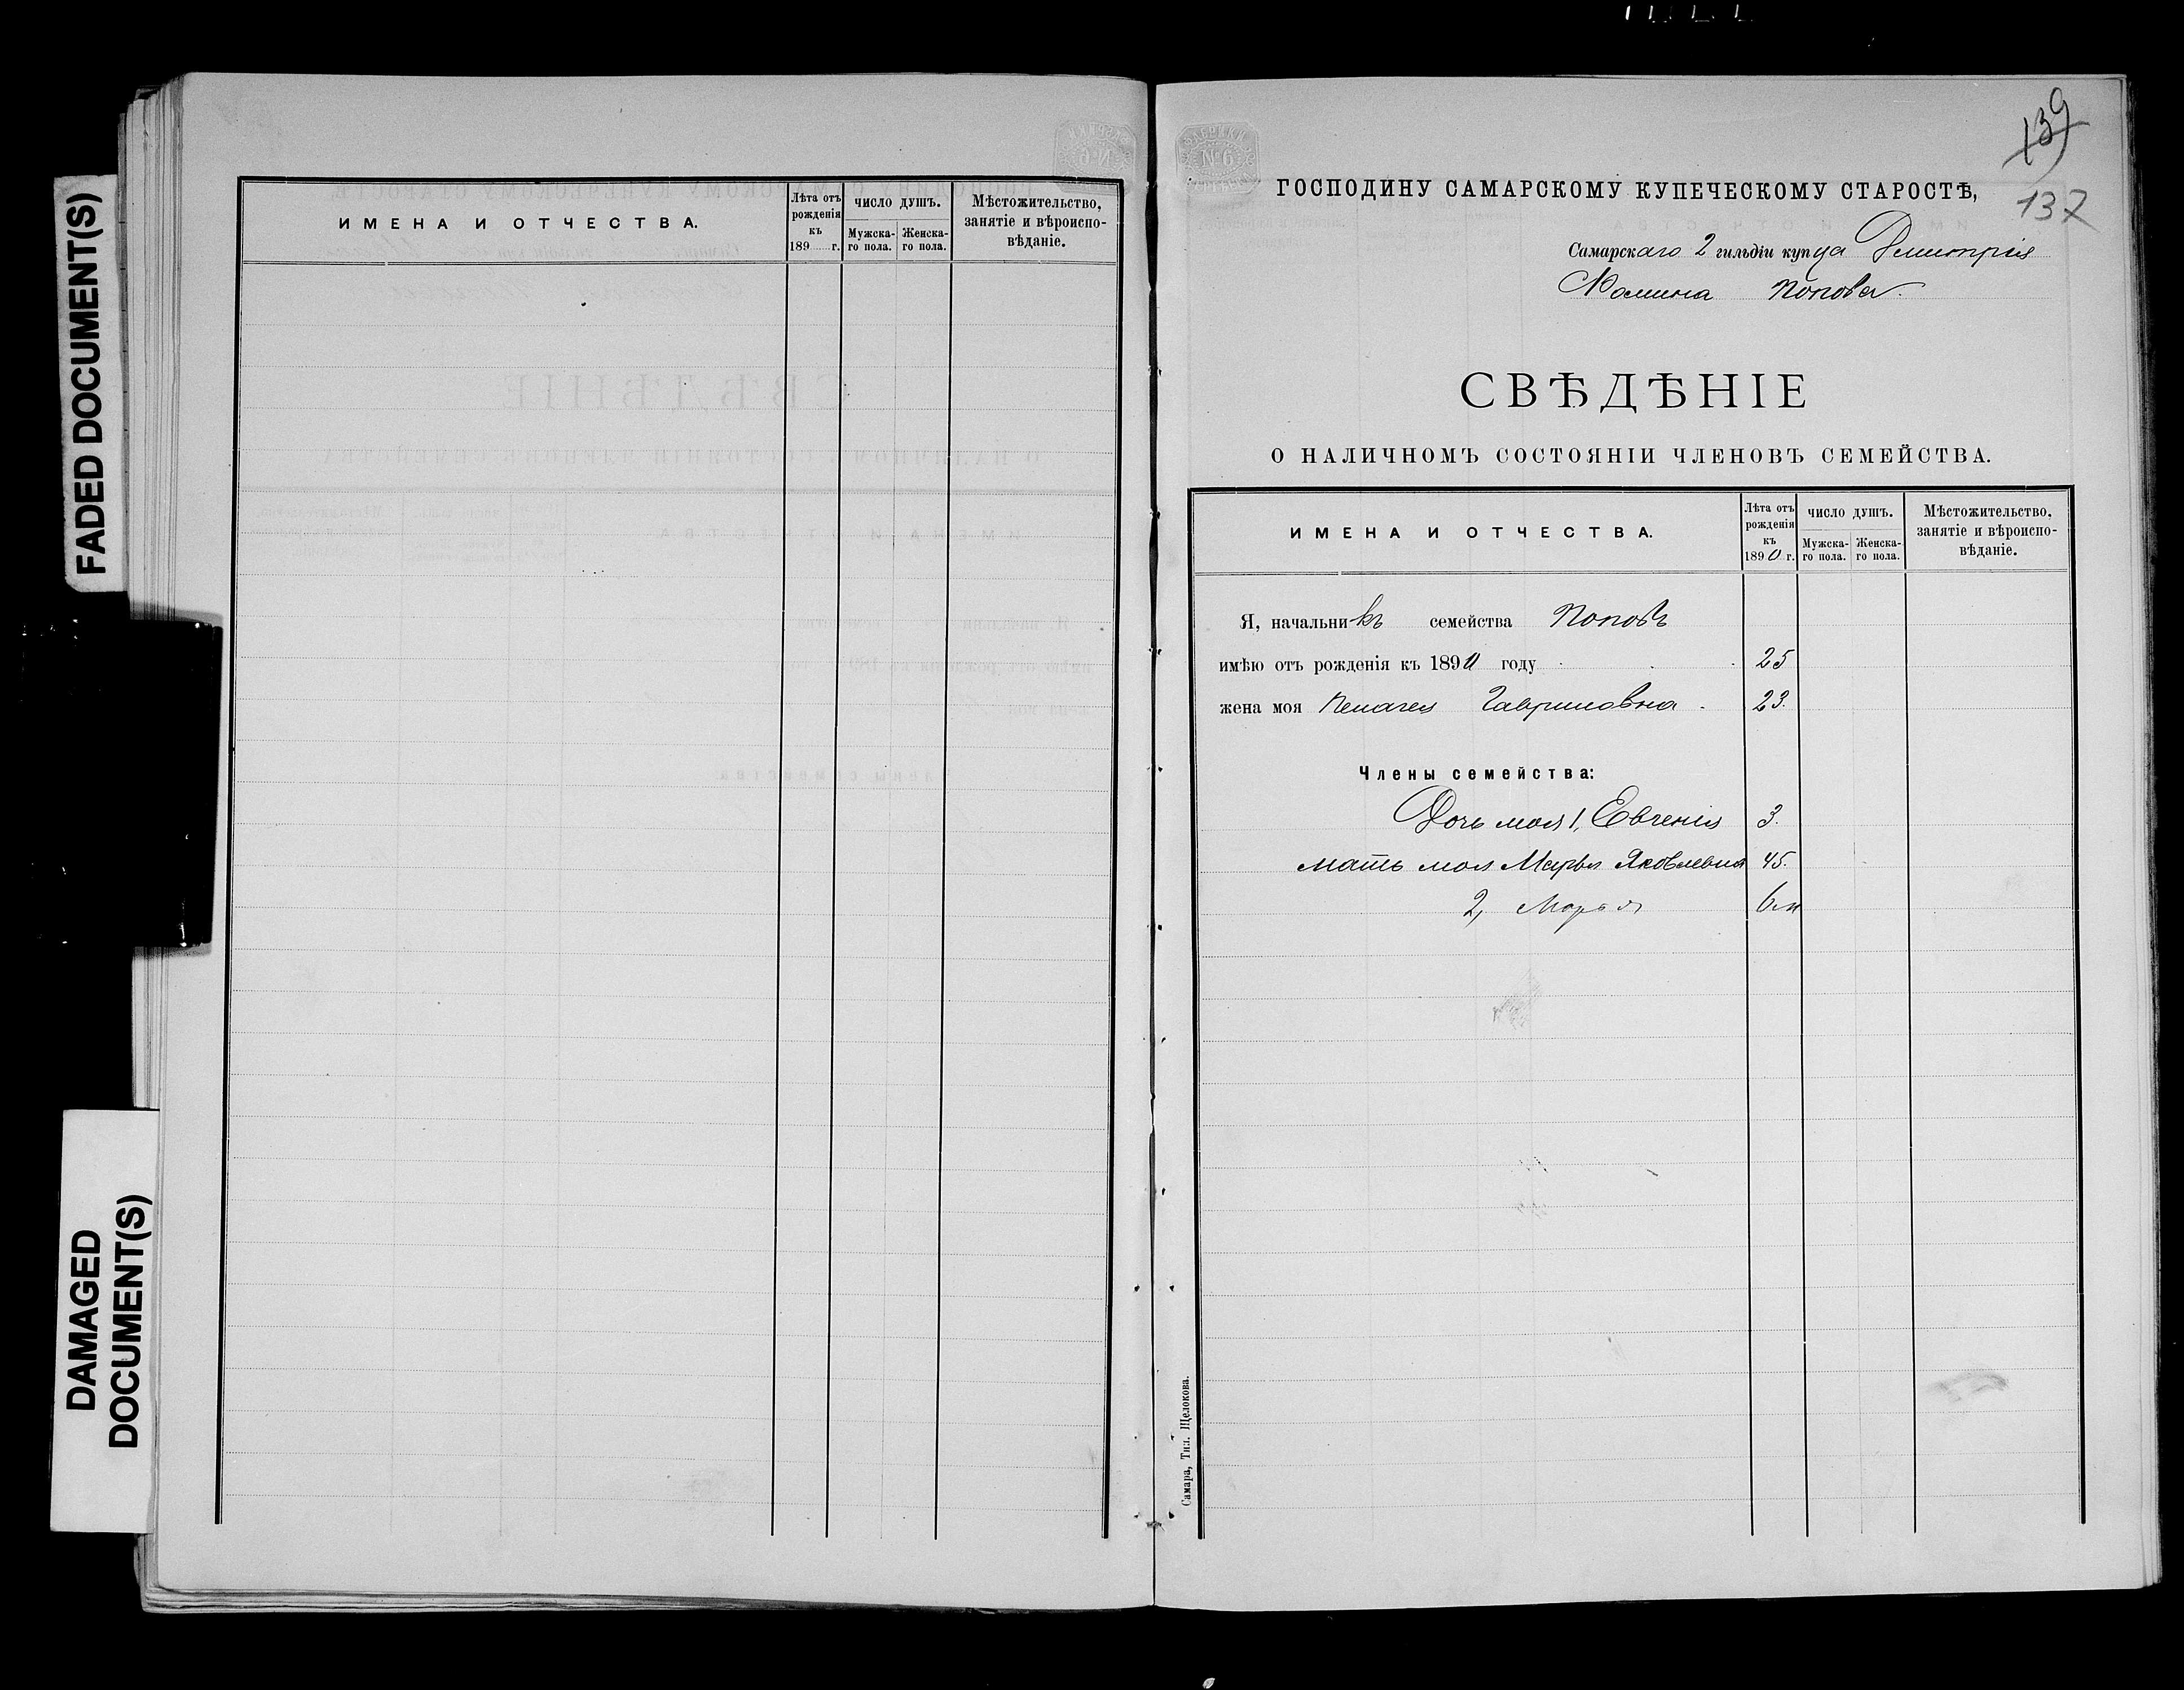 FADED DOCUMENT(S)
DAMAGED
DOCUMENT(S)
ИМЕНА И ОТЧЕСТВА.
Лѣта отъ
рожденія
къ
189 г.
ЧИСЛО ДУШЪ.
Мужска-
го пола.
Женска-
го пола.
Мѣстожительство,
занятіе и вѣроиспо-
вѣданіе.
139
137
№ 6
ГОСПОДИНУ САМАРСКОМУ КУПЕЧЕСКОМУ СТАРОСТѢ,
Самарскаго 2 гильдіи купца Димитрія
Фомина Попова.
СВѢДѢНІЕ
О НАЛИЧНОМЪ СОСТОЯНІИ ЧЛЕНОВЪ СЕМЕЙСТВА.
ИМЕНА И ОТЧЕСТВА.
Лѣта отъ
рожденія
къ
1890 г.
ЧИСЛО ДУШЪ.
Мужска-
го пола.
Женска-
го пола.
Мѣстожительство,
занятіе и вѣроиспо-
вѣданіе.
Я, начальникъ семейства Поповъ
имѣю отъ рожденія къ 1890 году 25
жена моя Пелагея Гавриловна 23.
Члены семейства:
Дочь моя 1, Евгенія 3.
мать моя Марья Яковлевна 45.
2, Марья 6 м
Самара, Тип. Щелокова.